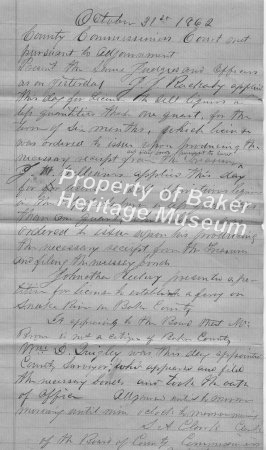 October 21st 1862
County Commissioners Court met
pursuant to Adjournment
Present the same Judges and Officers
as on Yesterday J J applied
this day for License to sell liquors in
less quantities than one quart, for the
term of Six months, which license
was ordered to issue upon producing the
necessary receipt from the Treasurer
J. M. applied this day
for
in
than one quart
ordered to issue upon his producing
the necessary receipt from the Treasurer
and filing the necessary bonds
Johnathan presents a pe-
tition for license to establish a ferry on
Snake River in Baker County
It appearing to the Board that Mr
is not a citizen of Baker County
Wm. D. Quigley was this day appointed
County Surveyor, who appeared and filed
the necessary bonds and took the oath
of Office Adjourned until tomorrow
morning until nine o'clock tomorrow morning
S. A. Clark Clerk
of the Board of County Commissioners
Property of Baker
Heritage Museum